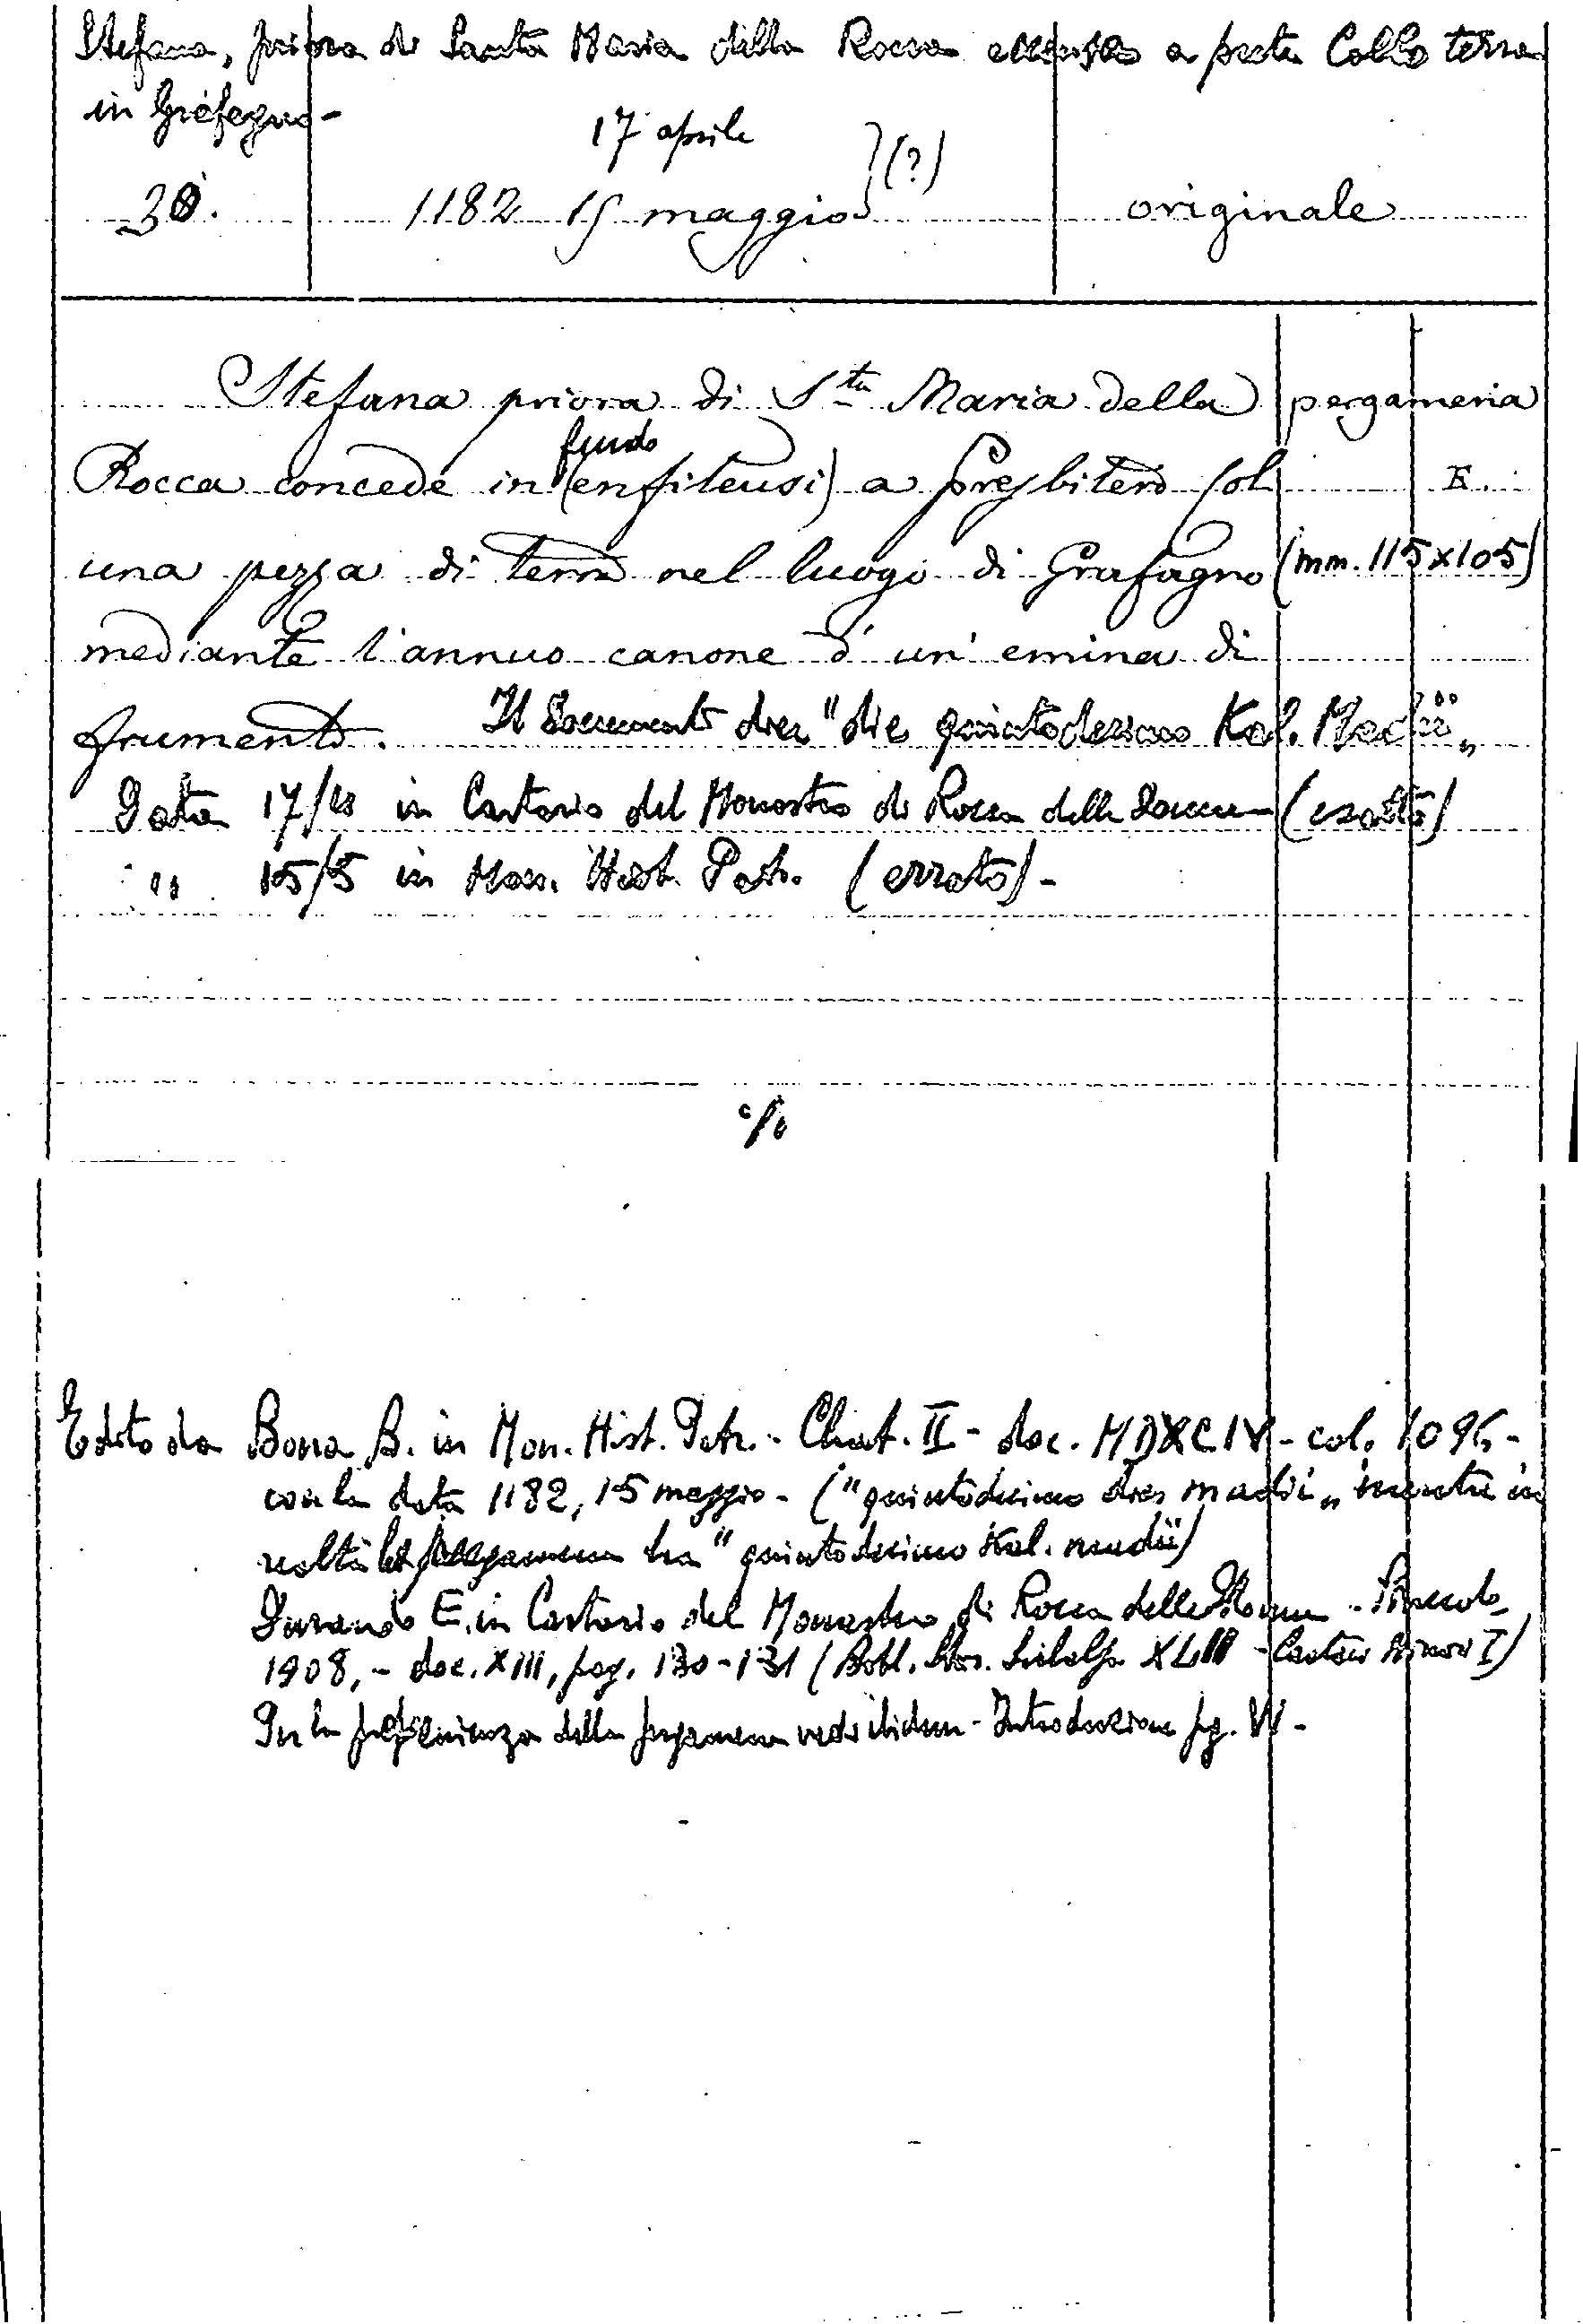 Stefana, priora di Santa Maria della Rocca a prete Collo terra
in Grefagno-
17 aprile
30. 1182 15 maggio } (?) originale
Stefana priora di Sta Maria della pergamena
feudo
Rocca concede in (enfiteusi) a Presbitero Col
una pezza di terra nel luogo di Grafagno (mm. 115x105)
mediante l'annuo canone d'un'emina di
frumento. Il documento dice "die quintodecimo Kal. Madii„
Data 17/4 in Cartario del Monastero di Rocca delle Donne (esatto)
" 15/5 in Mon. Hist. Patr. (errato)-
Edito da Bona B. in Mon. Hist. Patr. - Chart. II - doc. MDXCIV - col. 1096 -
con la data 1182, 15 maggio - ("quintodecimo dies madii„ mentre in
realtà la pergamena ha "quintodecimo Kal. madii)
Durando E. in Cartario del Monastero di Rocca delle Donne - Pinerolo
1908, - doc. XIII, pag. 130-131 (Bibl. Stor. Subalp. XLII - Cartari Minori I)
Per la provenienza della pergamena vedi ibidem - Introduzione pg. VI -